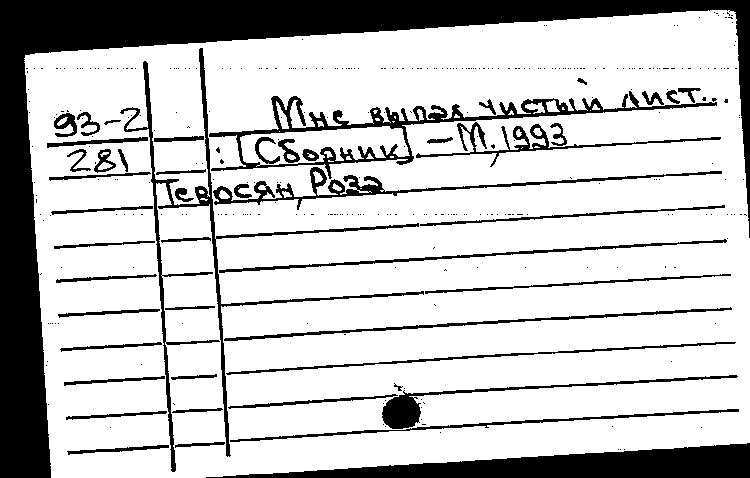 93-2 Мне выпал чистый лист...
281 : [Сборник]. - М., 1993.
Тевосян, Роза.